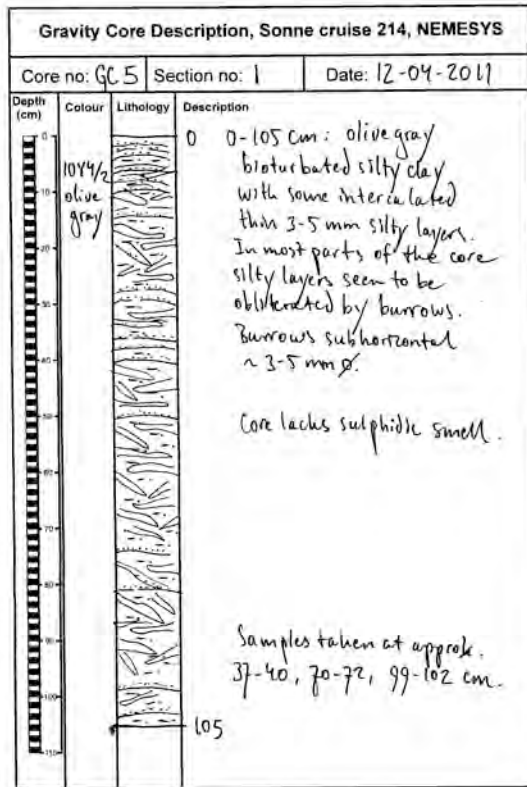 Gravity Core Description, Sonne cruise 214, NEMESYS
Core no: GC5 Section no: 1 Date: 12-04-2011
Depth (cm) Colour Lithology Description
0
10
20
30
40
50
60
70
80
90
100
110
10Y4/2
olive
gray
0
105
0-105 cm: olive gray
bioturbated silty clay
with some intercalated
thin 3-5 mm silty layers.
In most parts of the core
silty layers seen to be
obliterated by burrows.
Burrows subhorizontal
~ 3-5 mm ø.
Core lacks sulphidic smell.
Samples taken at approx.
37-40, 70-72, 99-102 cm.